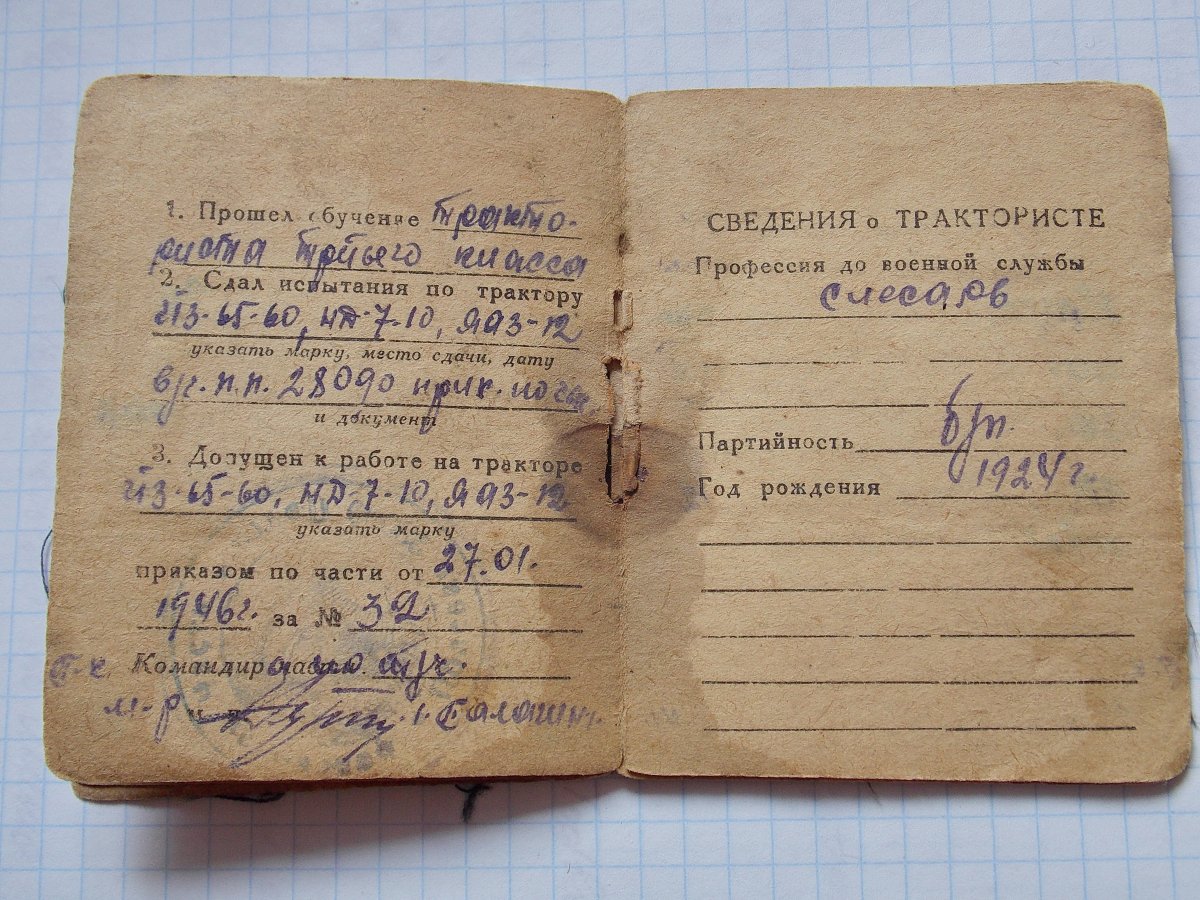 1. Прошел обучение тракто-
риста третьего класса
2. Сдал испытания по трактору
ЧТЗ-65-60, НД-7-10, ЯАЗ-12
указать марку, место сдачи, дату
в/ч. п.п. 28090
и документ
3. Допущен к работе на тракторе
ЧТЗ-65-60, НД-7-10, ЯАЗ-12
указать марку
приказом по части от 27.01.
1946г. за № 32
Командир части
м-р
СВЕДЕНИЯ о ТРАКТОРИСТЕ
Профессия до военной службы
слесарь
Партийность б/п.
Год рождения 1924г.